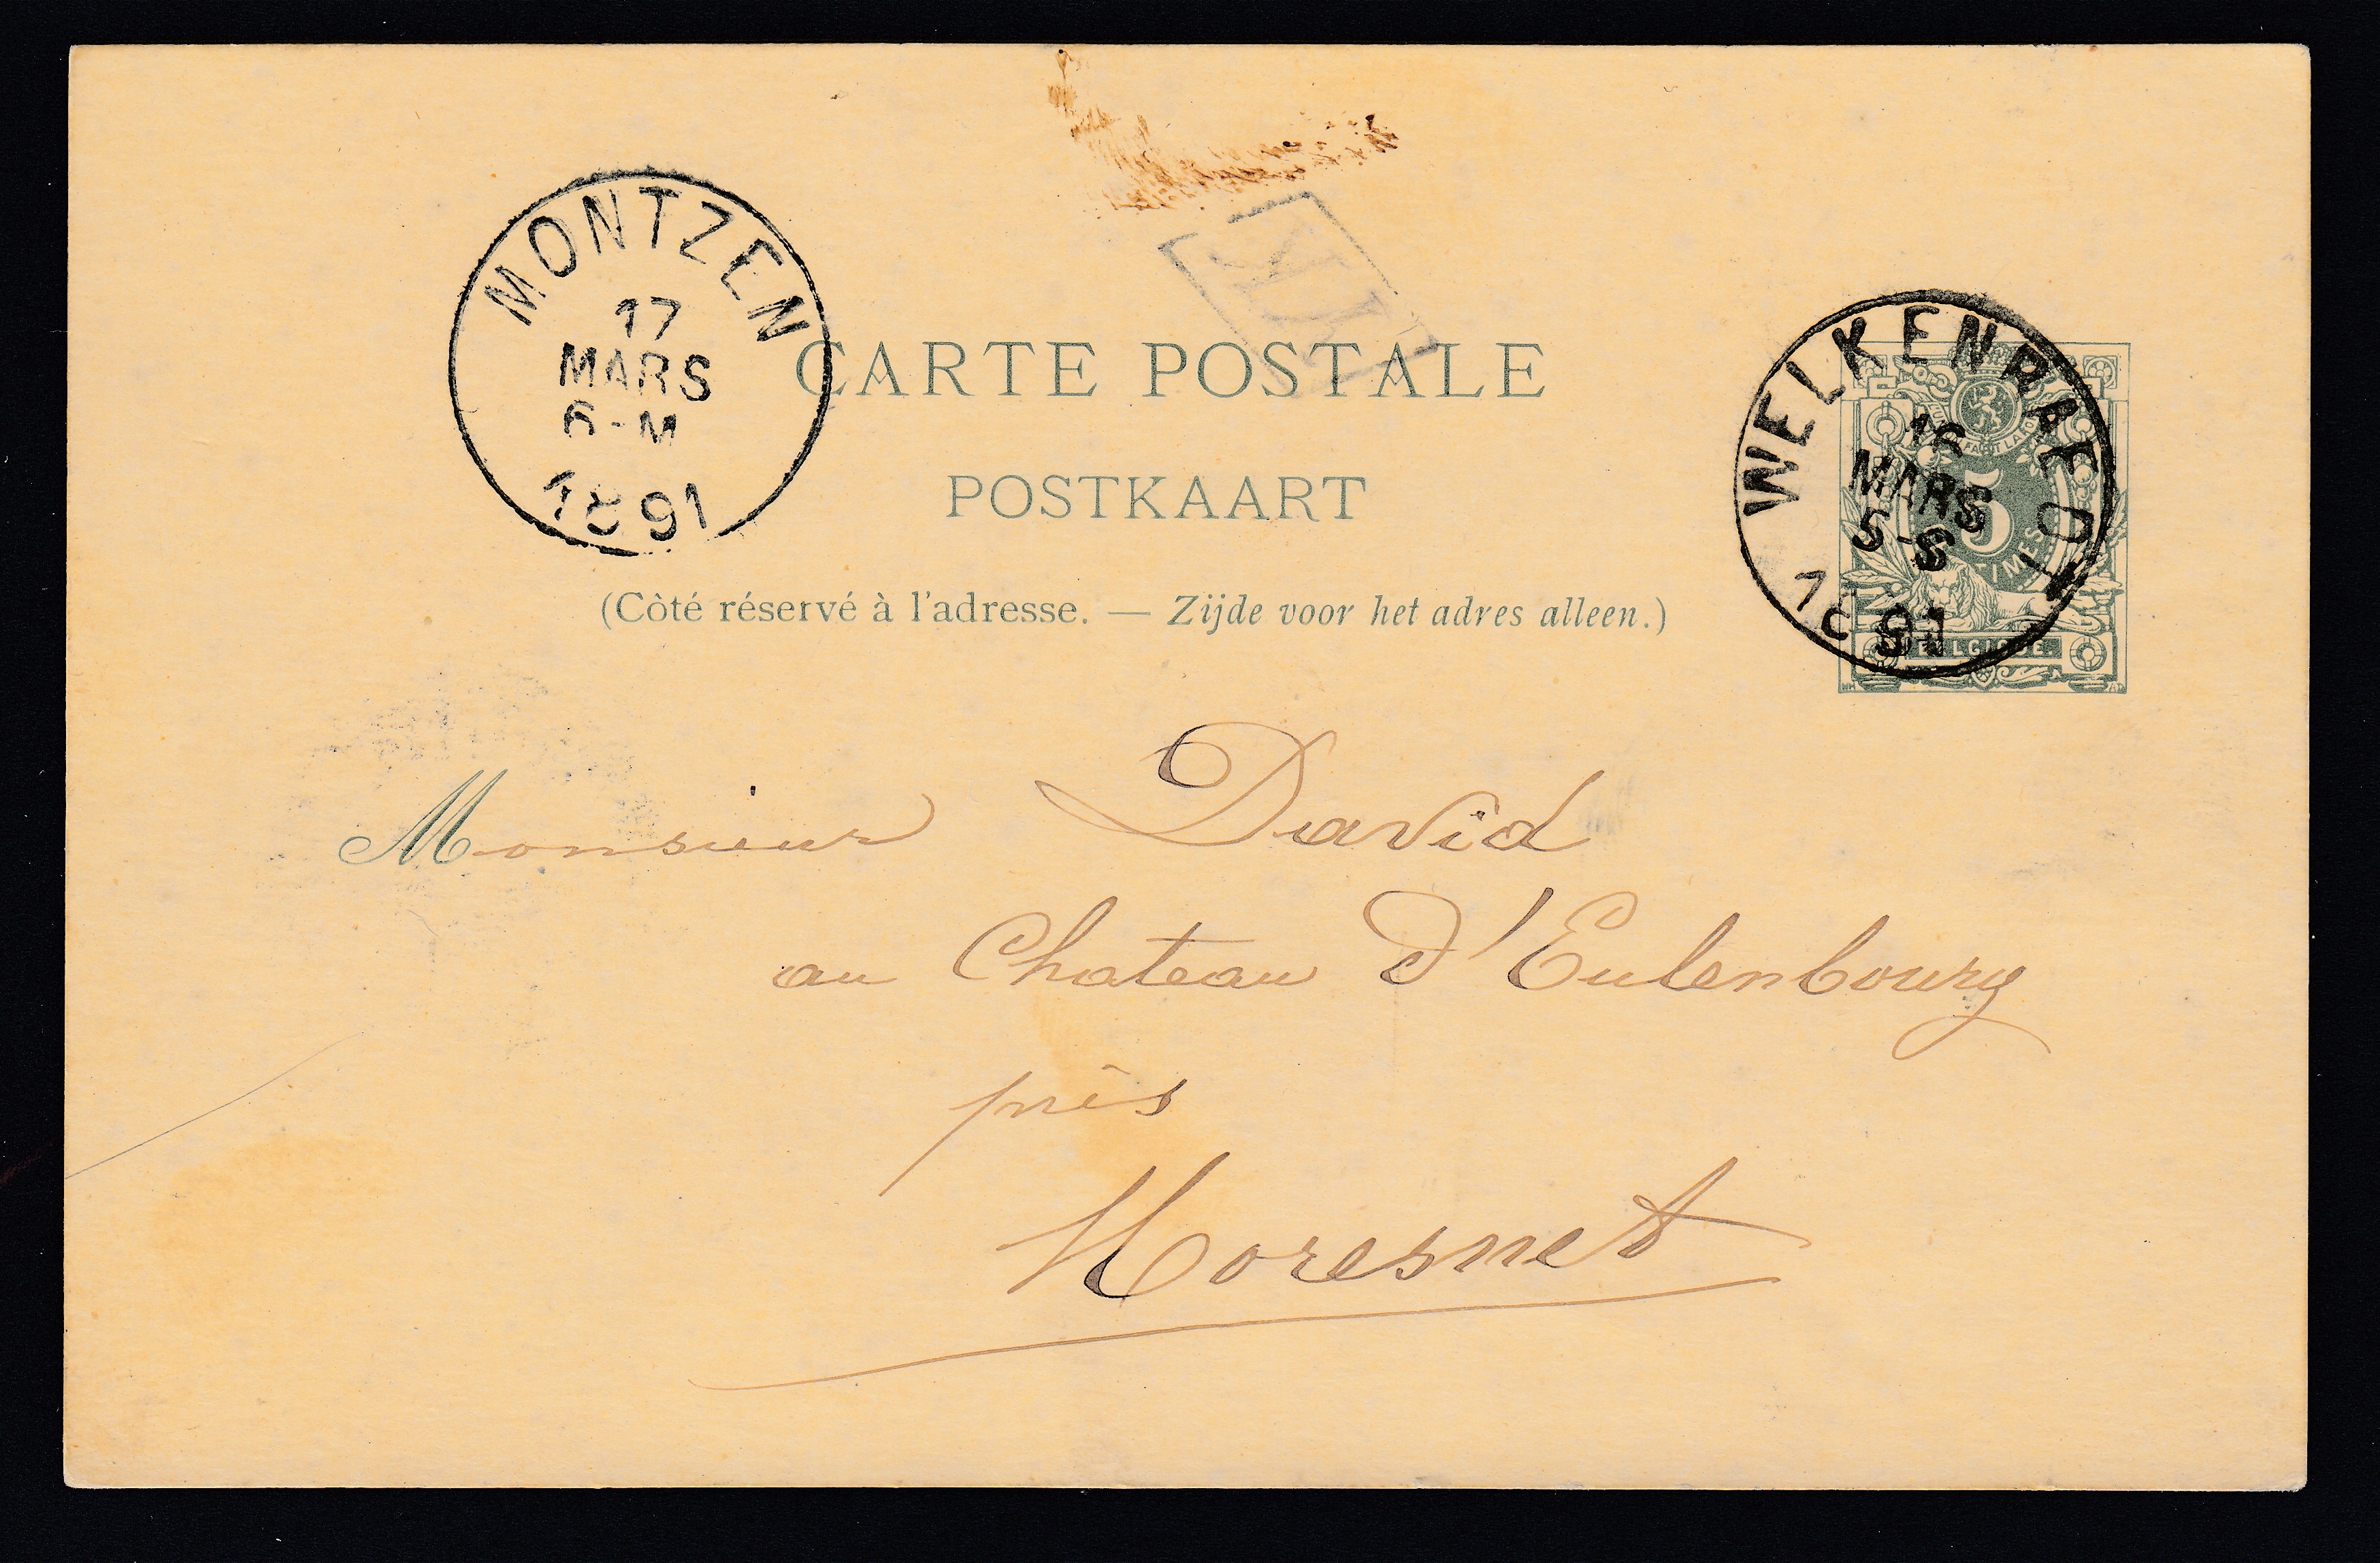 MONTZEN
17
MARS
6-M
1891
CARTE POSTALE
POSTKAART
(Côté réservé à l'adresse. — Zijde voor het adres alleen.)
WELKENRAEDT
16
MARS
5-S
1891
5
BELGIQUE
Monsieur David
au Chateau d'Eulenbourg
près
Moresnet